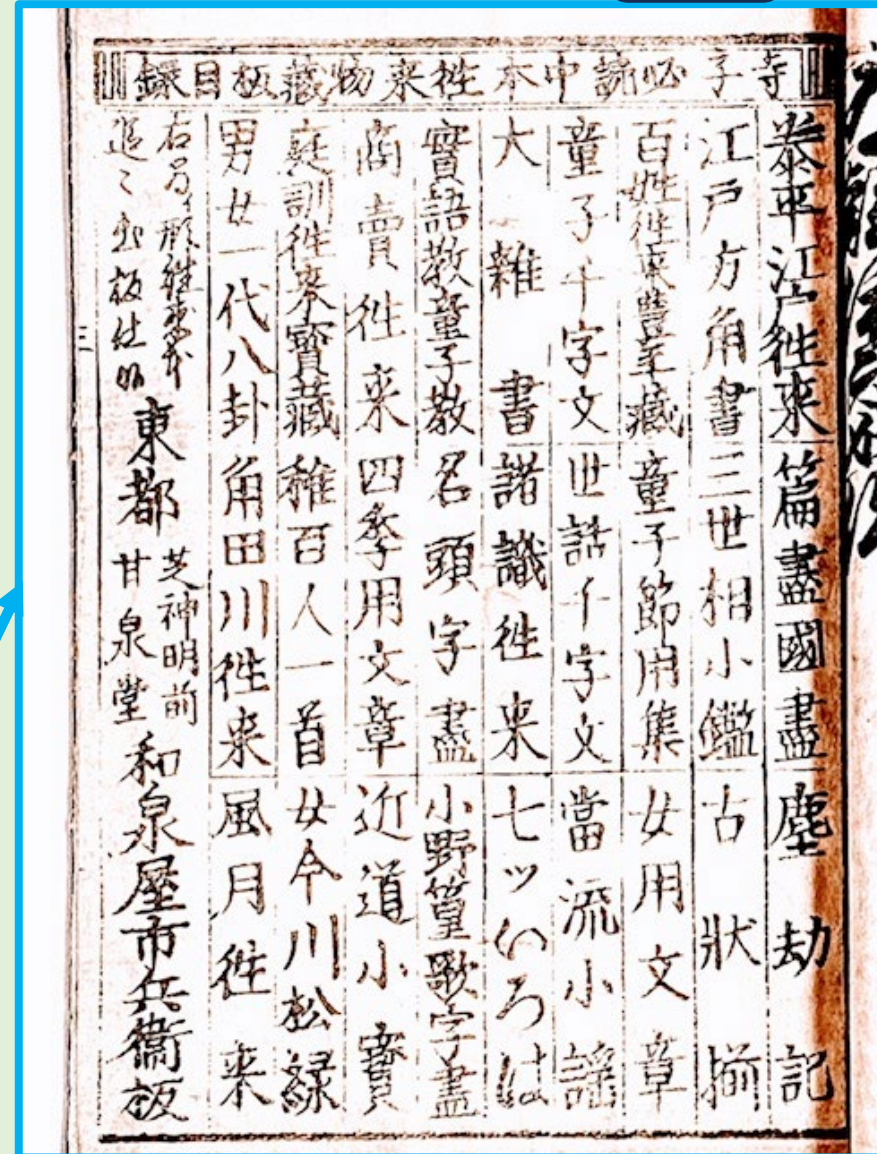 寺子必讀中本徃来物藏板目録
泰平江戸徃来 篇盡國盡 塵劫記
江戸方角書 三世相小鑑 古狀揃
百姓徃来豊年藏 童子節用集 女用文章
童子千字文 世話千字文 當流小謡
大雑書 諸識徃来 七ツいろは
實語教童子教 名頭字盡 小野篁歌字盡
商賣徃来 四季用文章 近道小寳
庭訓徃来寳藏 稚百人一首 女今川松緑
男女一代八卦 角田川徃来 風月徃来
追々出板仕候
東都
芝神明前
甘泉堂
和泉屋市兵衞板
三